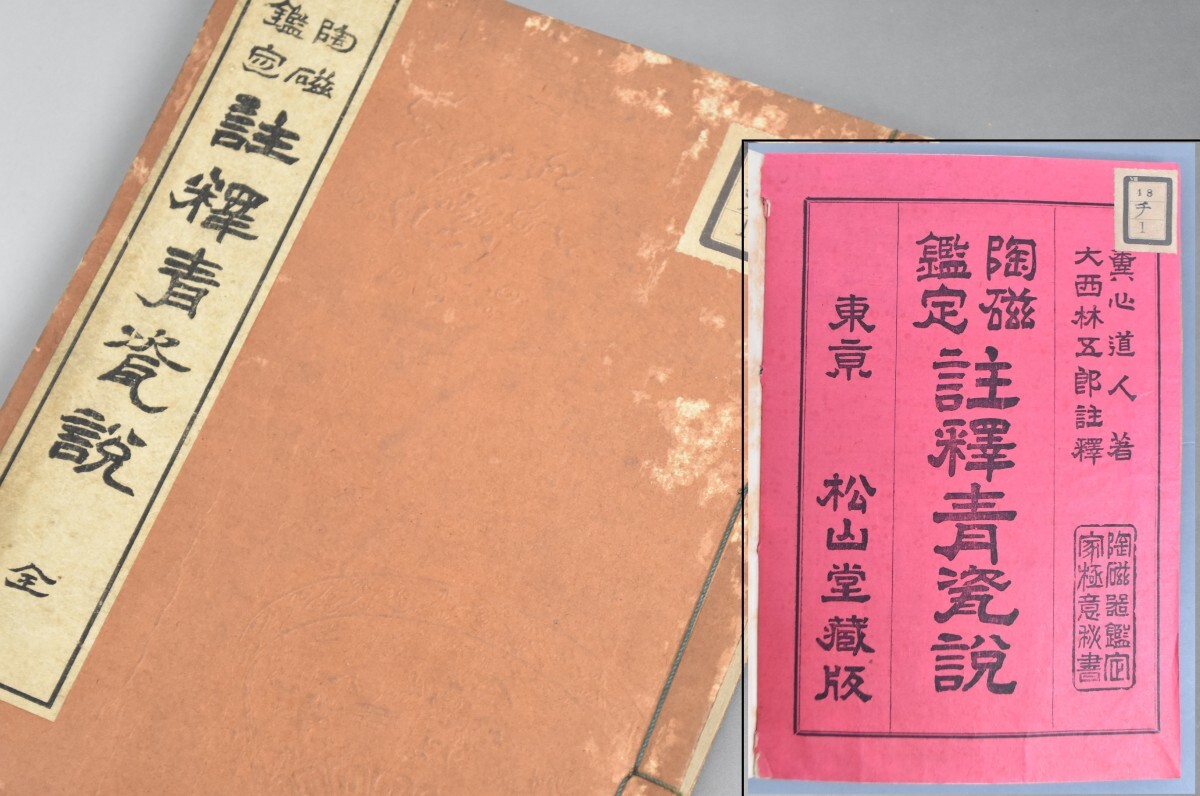 陶磁
鑑定
註釋青瓷說
全
18
チ
1
心道人著
大西林五郎註釋
陶磁器鑑定
家極意秘書
陶磁
鑑定
註釋青瓷說
東亰 松山堂藏版